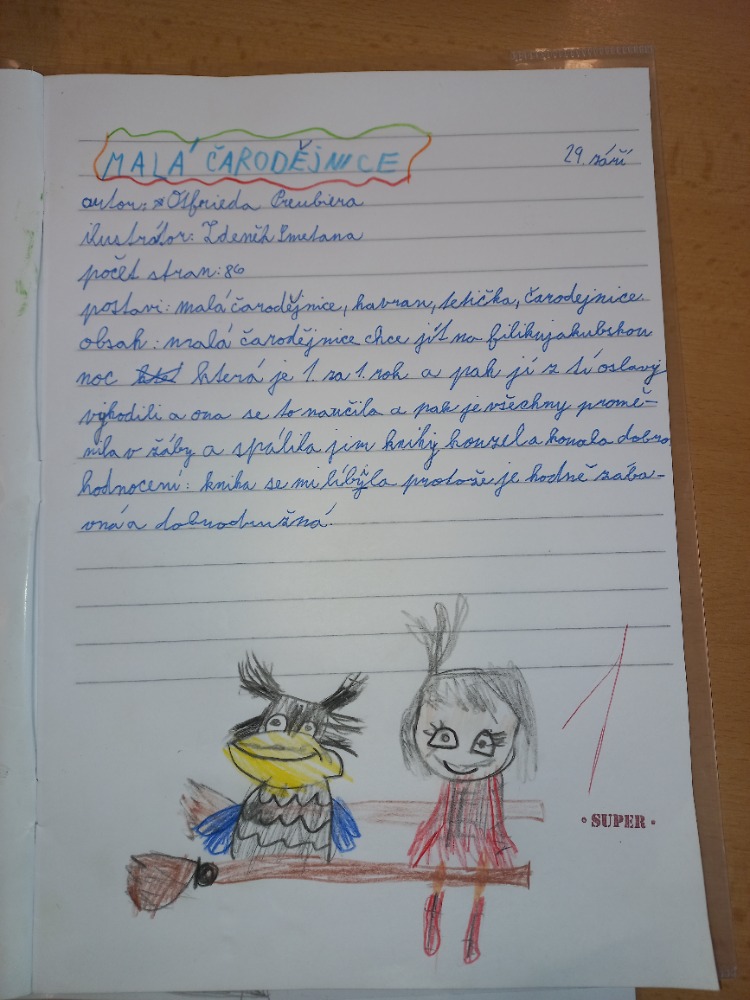 MALÁ ČARODĚJNICE
29. září
autor: Otfrieda Preubiera
ilustrátor: Zdeněk Smetana
počet stran: 86
postavi: malá čarodějnice, havran, tetička, čarodejnice
obsah: malá čarodějnice chce jít na filikujakubskou
noc která je 1. za 1. rok a pak ji z tí oslavy
vyhodili a ona se to naučila a pak je všechny promě-
nila v žáby a spálila jim knihy kouzel a konala dobro
hodnocení: kniha se mi líbyla protože je hodně zába-
vná a dobrodružná.
1
• SUPER •